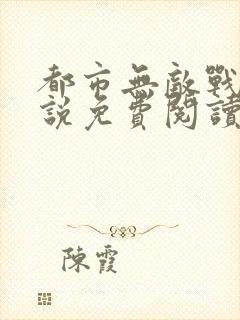 都市無敵戰
說免費閱讀
陳霞